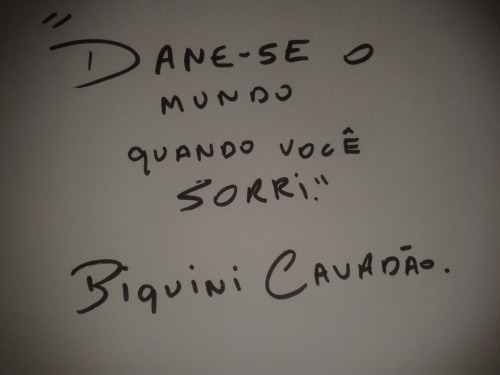 "DANE-SE O
MUNDO
QUANDO VOCÊ
SORRI."
BIQUINI CAVADÃO.